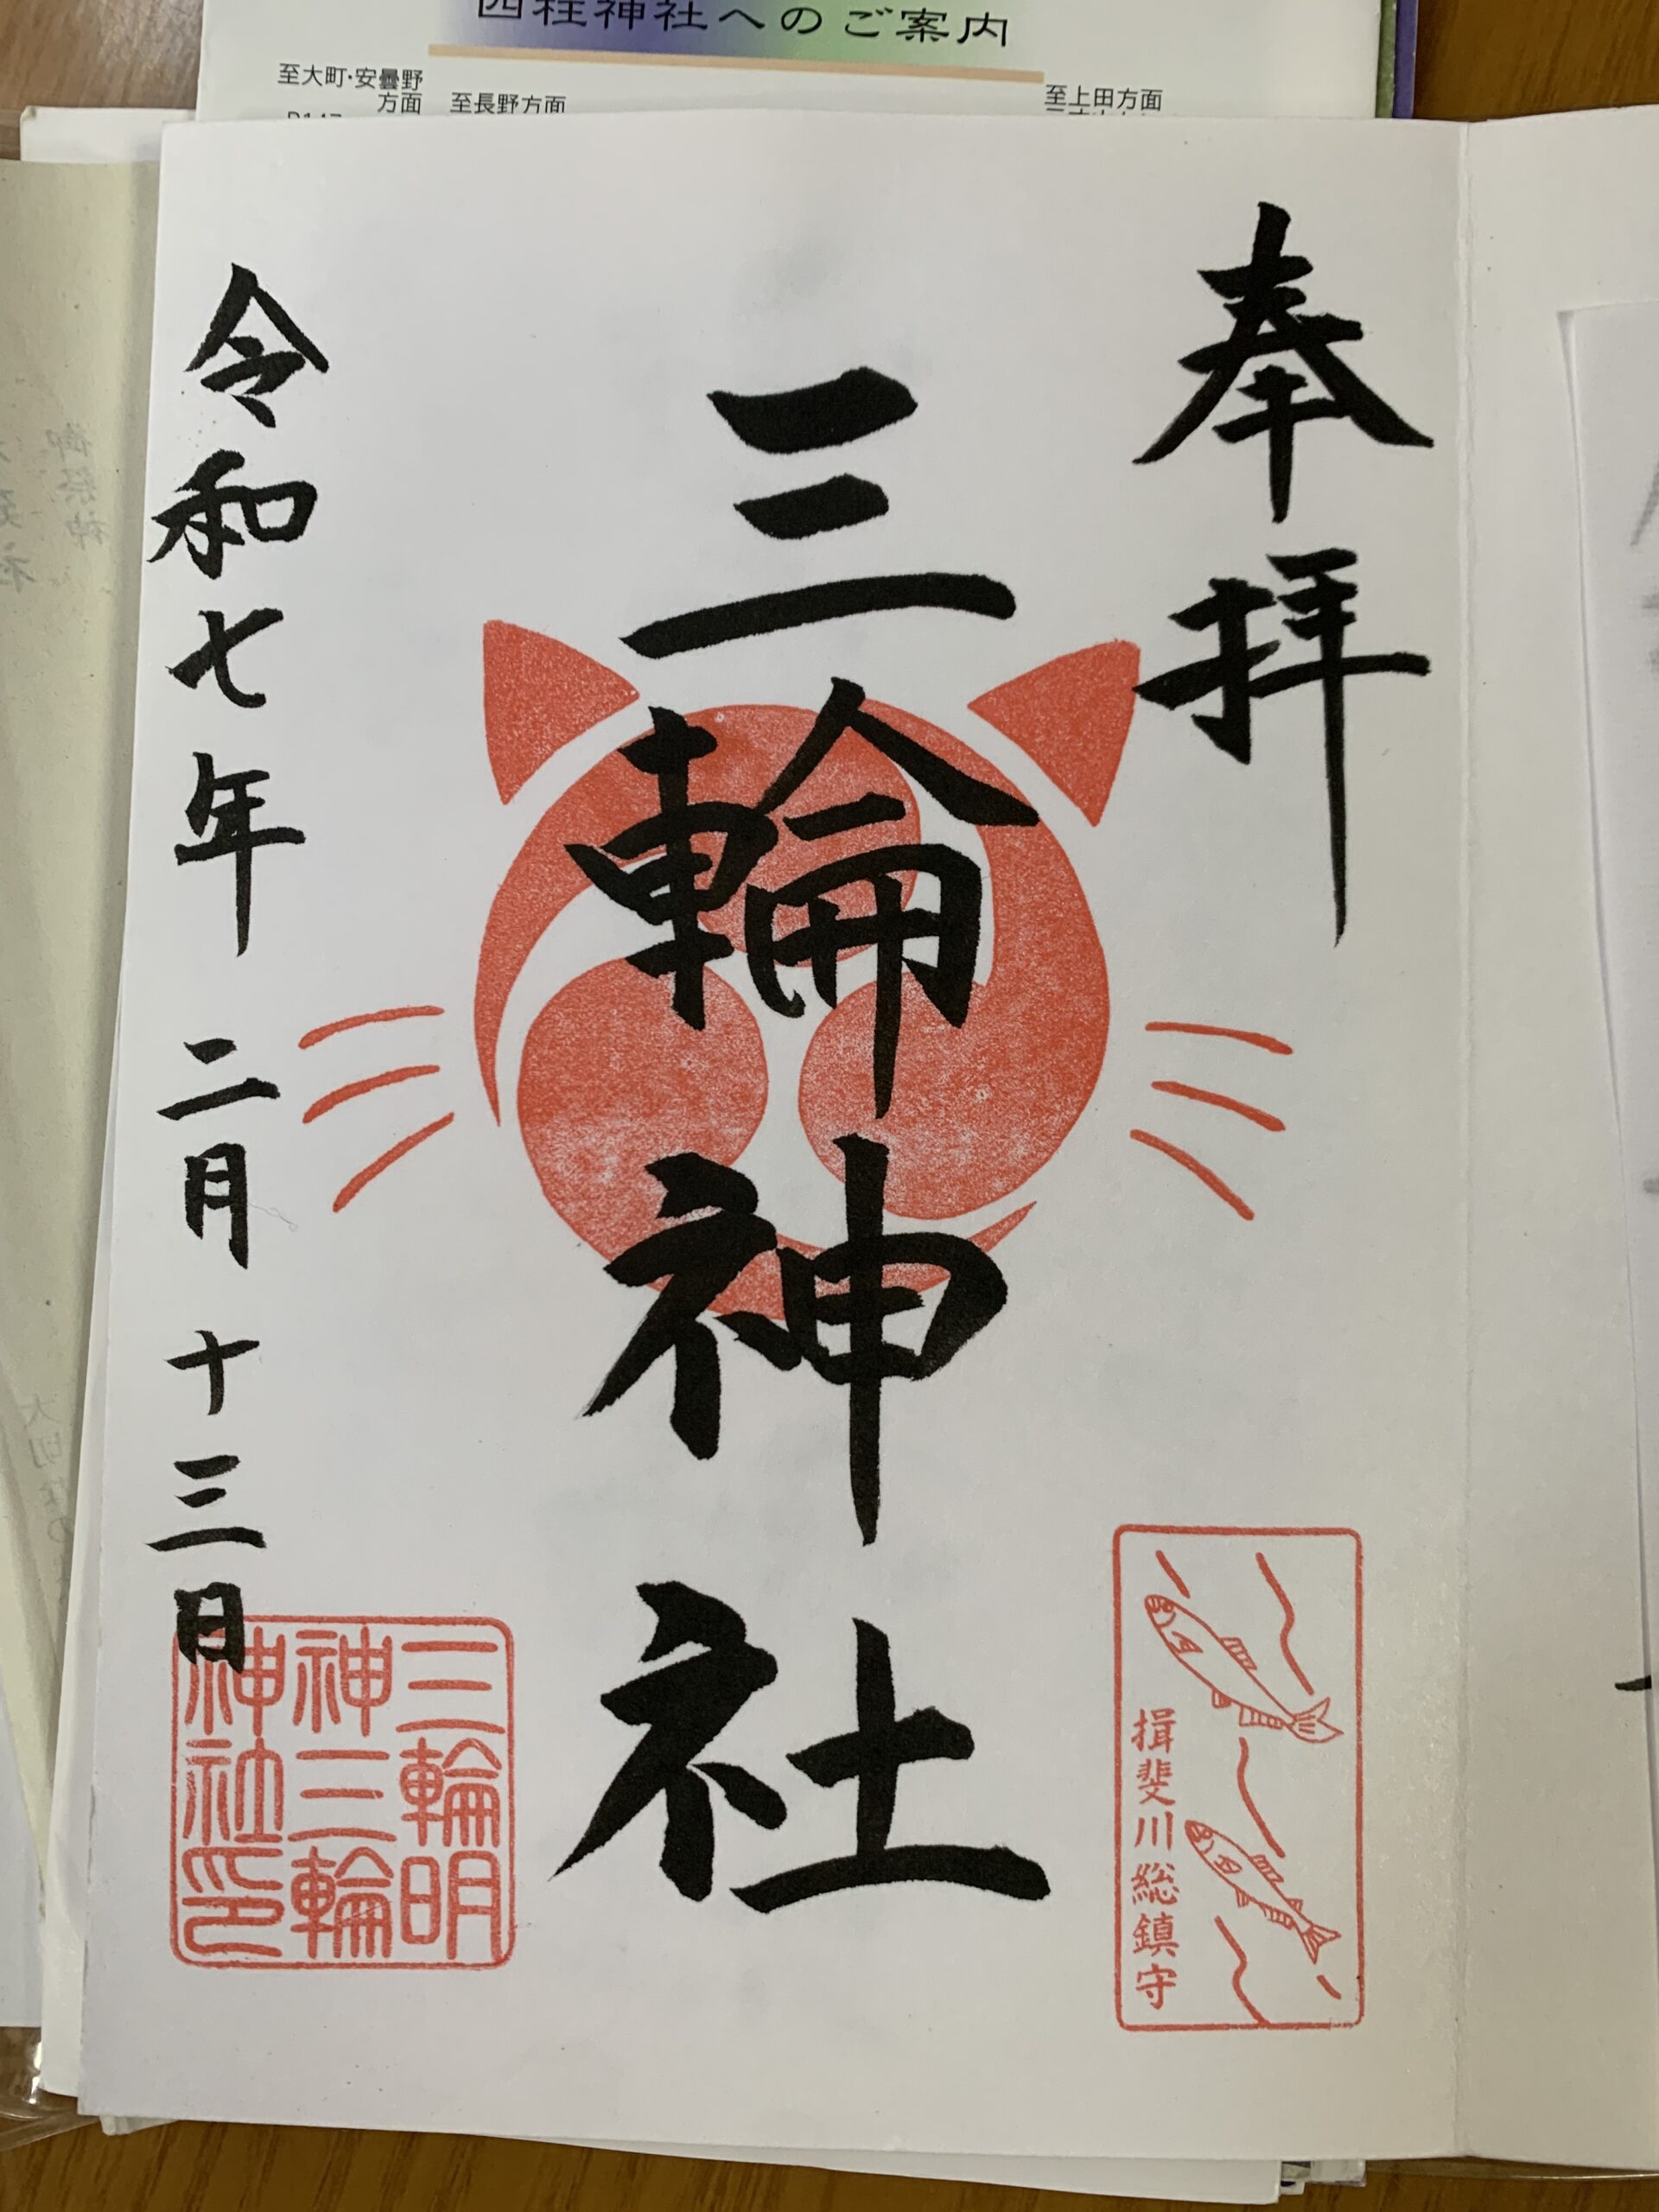 四柱神社へのご案内
至大町・安曇野
方面
至長野方面
至上田方面
奉拝
三輪神社
令和七年 二月 十三日
揖斐川総鎮守
三輪明
神三輪
神社印
御祭神